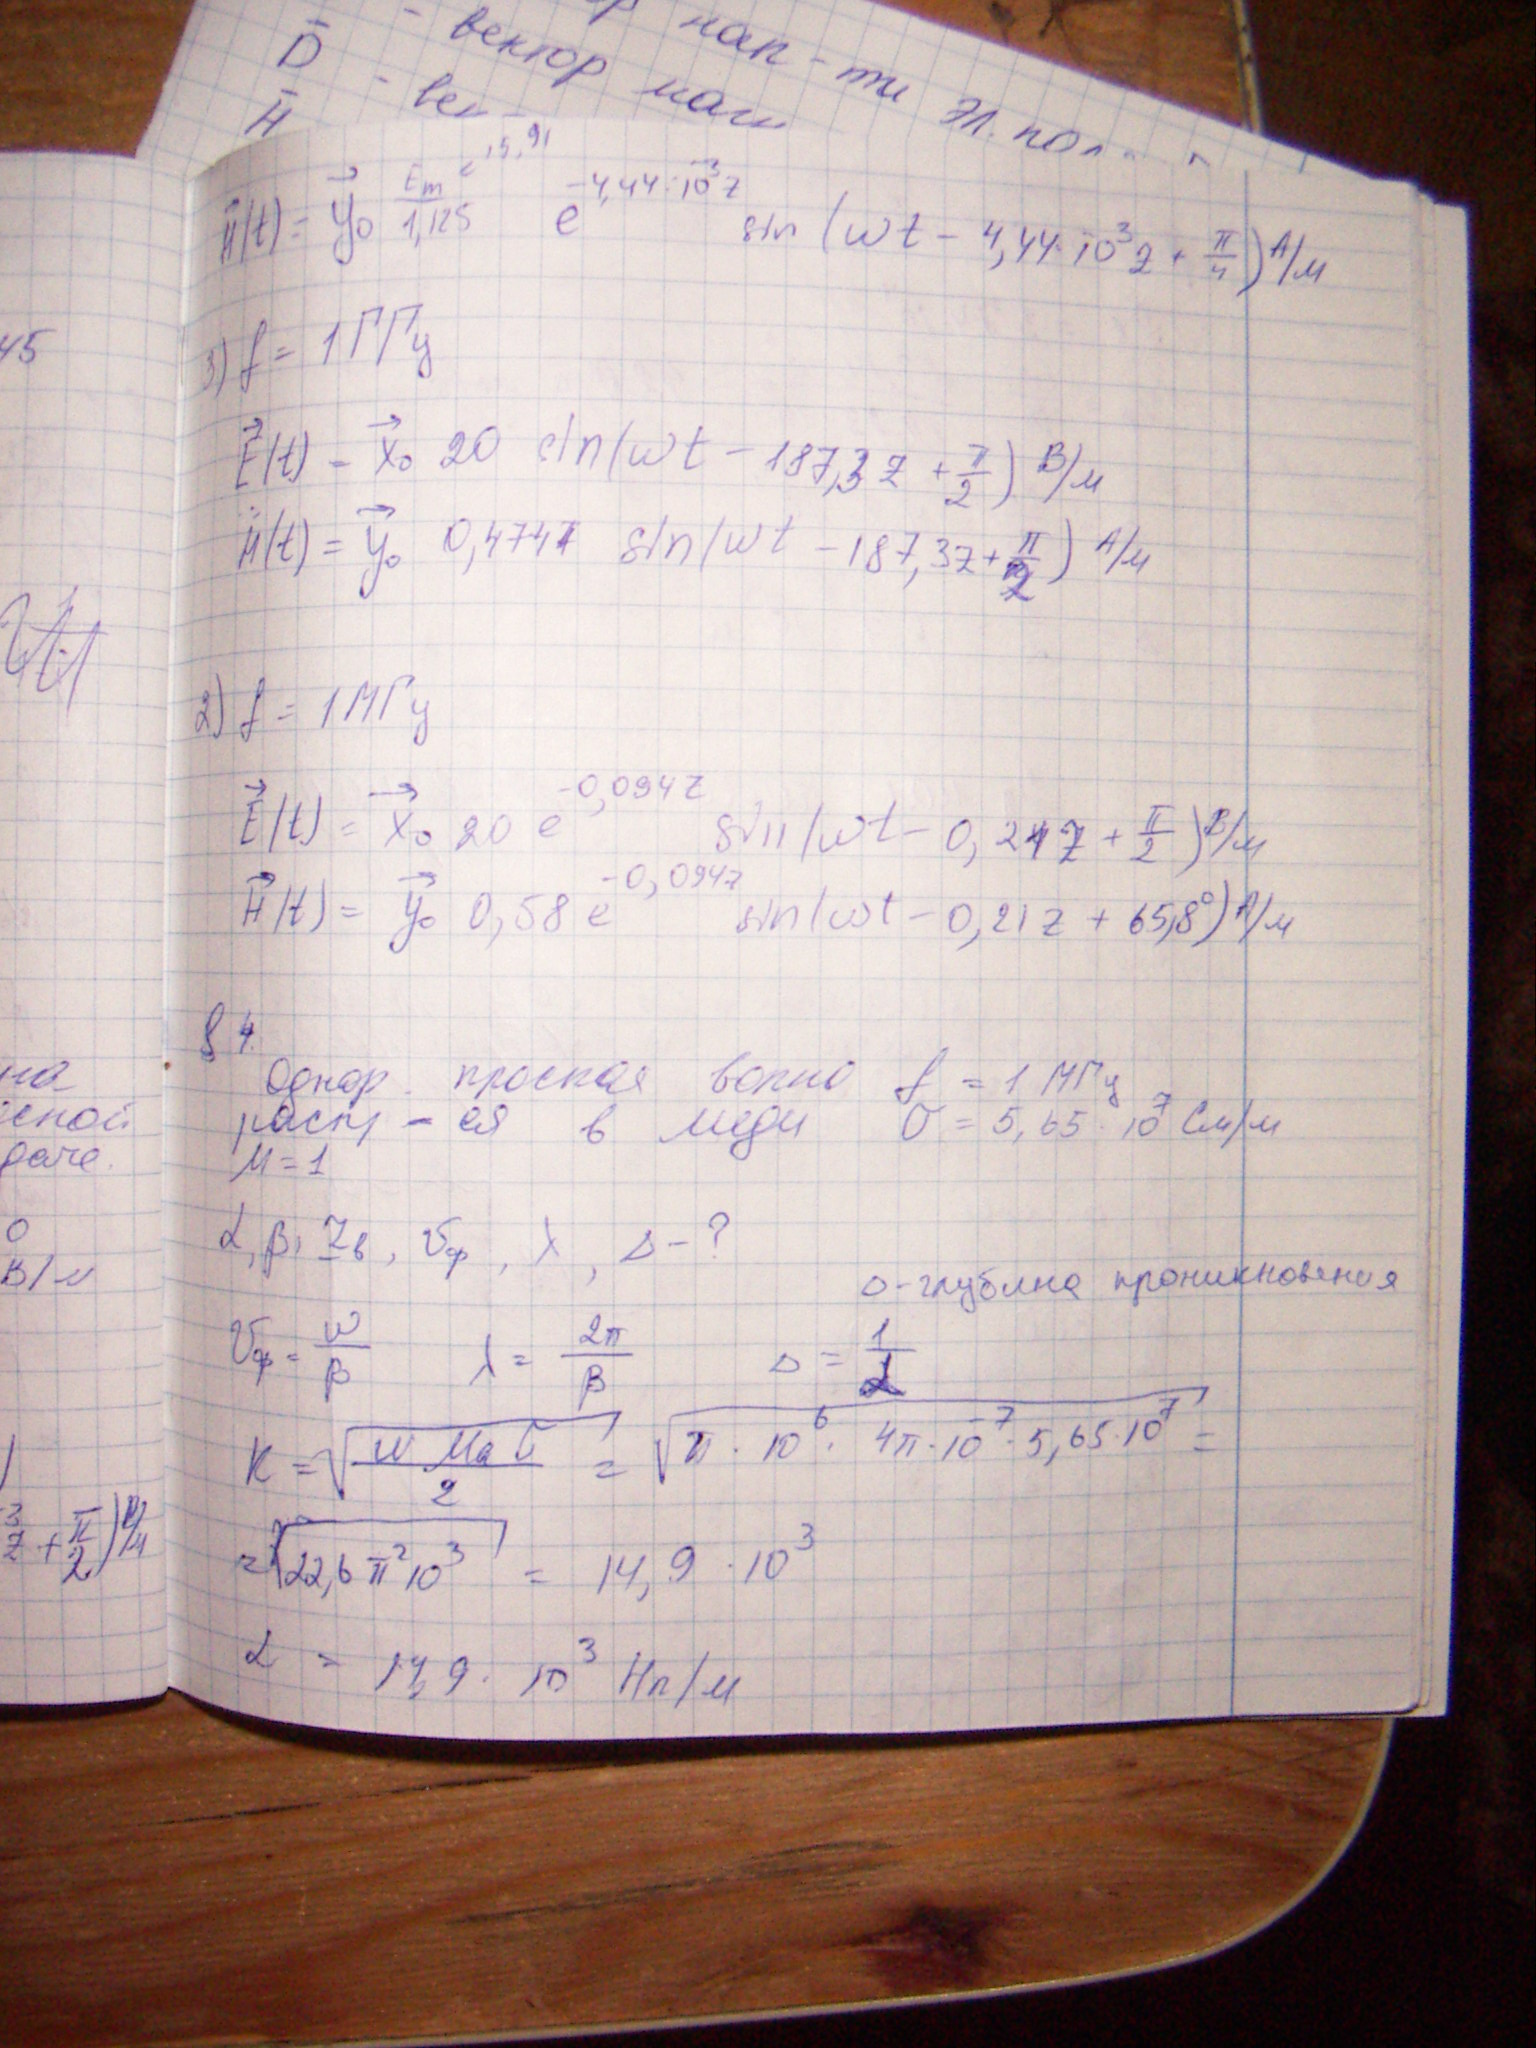 нап-ти эл. пол
D̄ - вектор маг
H̄ - век
H⃗(t) = y⃗₀ Eₘ/1,125 e^15,91 e^-4,44·10⁻³z sin(wt - 4,44·10⁻³z + π/4) А/м
3) f = 1 ГГц
E⃗(t) = x⃗₀ 20 sin(wt - 187,3z + π/2) В/м
H⃗(t) = y⃗₀ 0,4747 sin(wt - 187,3z + π/2) А/м
2) f = 1 МГц
E⃗(t) = x⃗₀ 20 e^-0,094z sin(wt - 0,21z + π/2) В/м
H⃗(t) = y⃗₀ 0,58 e^-0,094z sin(wt - 0,21z + 65,8°) А/м
§ 4.
Однор. плоская волна f = 1 МГц
распр-ся в меди σ = 5,65·10⁷ См/м
μ = 1
α, β, Zв, vф, λ, Δ - ?
Δ - глубина проникновения
vф = w/β λ = 2π/β Δ = 1/α
K = √(w μa σ / 2) = √(π · 10⁶ · 4π·10⁻⁷ · 5,65·10⁷) =
= √(22,6 π² 10³) = 14,9 · 10³
α = 14,9 · 10³ Нп/м
45
на
сной
даче.
0
В/м
z + π/2) В/м